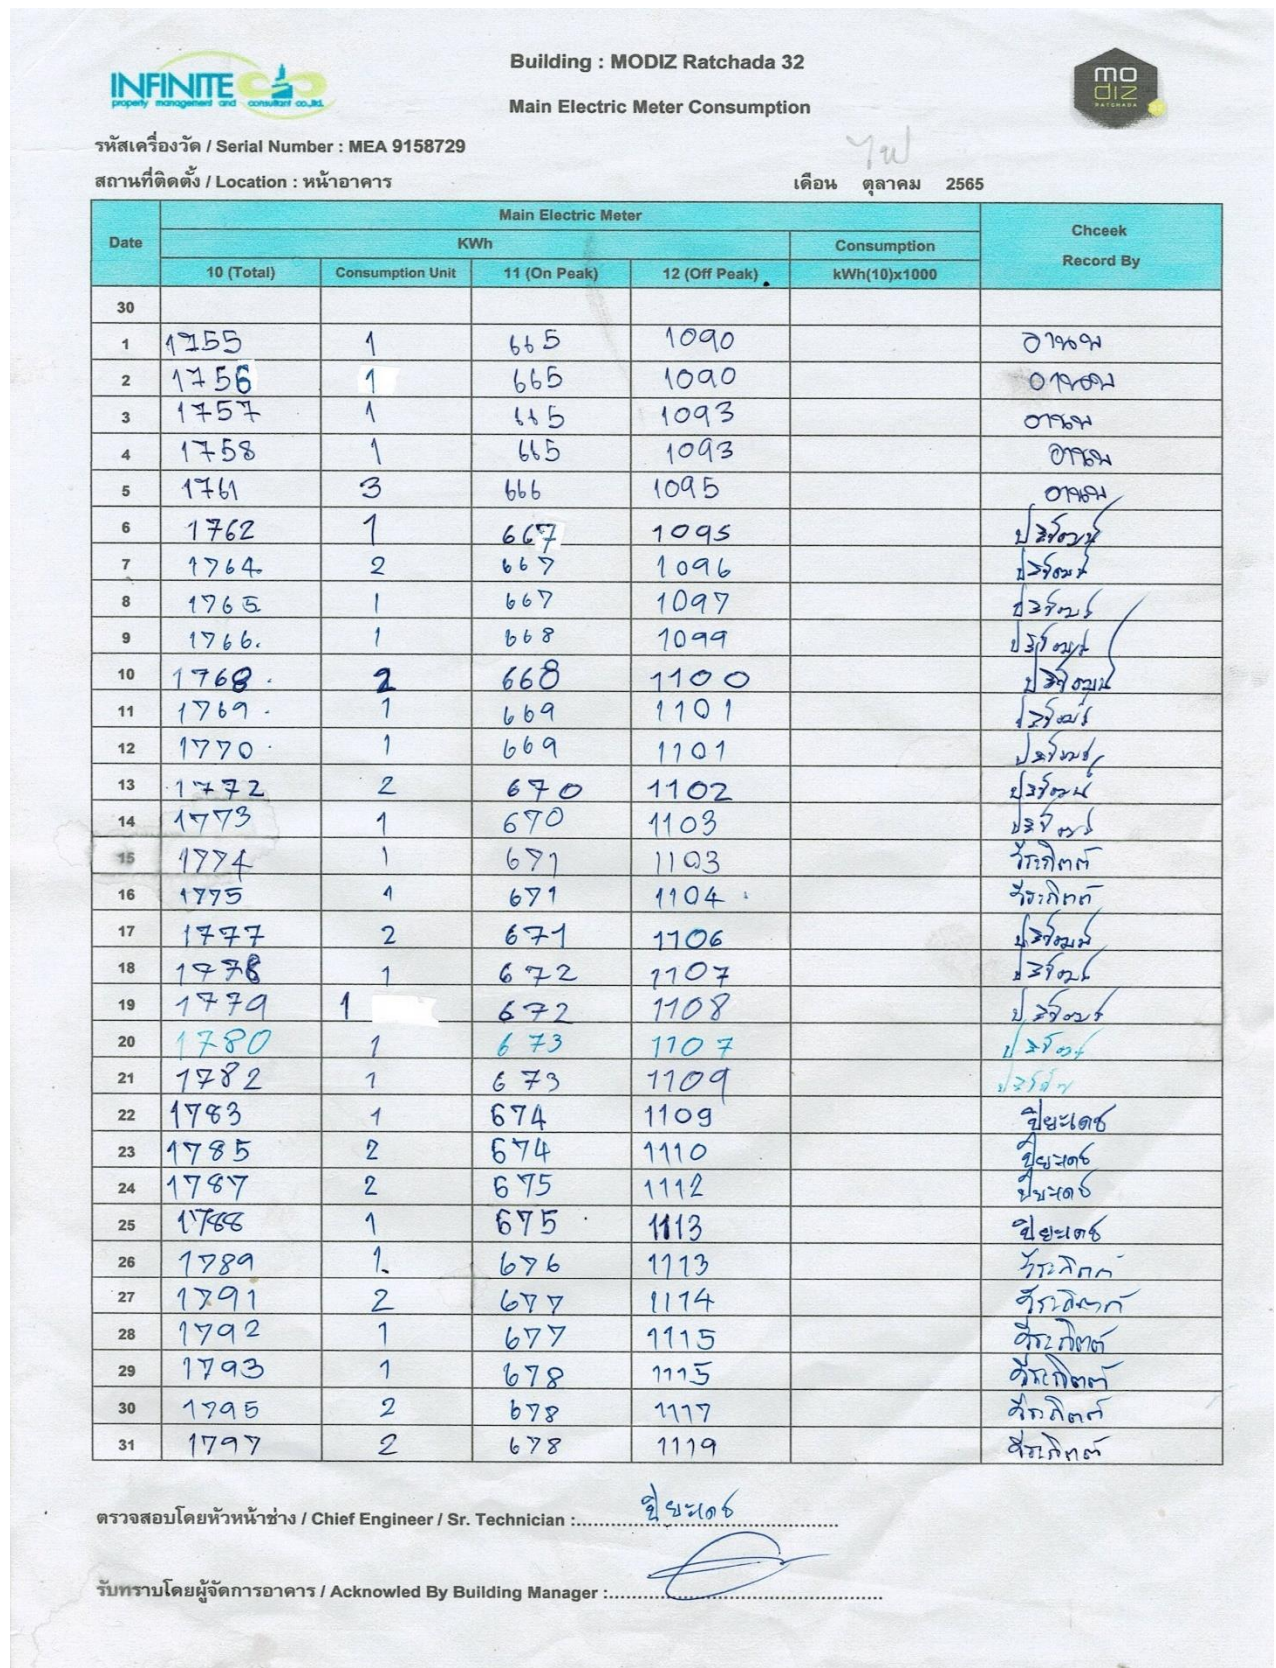 INFINITE
property management and consultant co.,ltd.
Building : MODIZ Ratchada 32
Main Electric Meter Consumption
mo
diz
RATCHADA
32
รหัสเครื่องวัด / Serial Number : MEA 9158729
ไฟ
สถานที่ติดตั้ง / Location : หน้าอาคาร เดือน ตุลาคม 2565
Date Main Electric Meter Chceek Record By
KWh Consumption
10 (Total) Consumption Unit 11 (On Peak) 12 (Off Peak) kWh(10)x1000
30
1 1755 1 665 1090 อานนท
2 1756 1 665 1090
3 1757 1 665 1093
4 1758 1 665 1093
5 1761 3 666 1095
6 1762 1 667 1095
7 1764 2 667 1096
8 1765 1 667 1097
9 1766. 1 668 1099
10 1768. 2 668 1100
11 1769. 1 669 1101
12 1770. 1 669 1101
13 1772 2 670 1102
14 1773 1 670 1103
15 1774 1 671 1103
16 1775 1 671 1104
17 1777 2 671 1106
18 1778 1 672 1107
19 1779 1 672 1108
20 1780 1 673 1107
21 1782 1 673 1109
22 1783 1 674 1109 ปิยะเดช
23 1785 2 674 1110 ปิยะเดช
24 1787 2 675 1112 ปิยะเดช
25 1788 1 675 1113 ปิยะเดช
26 1789 1. 676 1113
27 1791 2 677 1114
28 1792 1 677 1115
29 1793 1 678 1115
30 1795 2 678 1117
31 1797 2 678 1119
ตรวจสอบโดยหัวหน้าช่าง / Chief Engineer / Sr. Technician :.......... ปิยะเดช
รับทราบโดยผู้จัดการอาคาร / Acknowled By Building Manager :..........